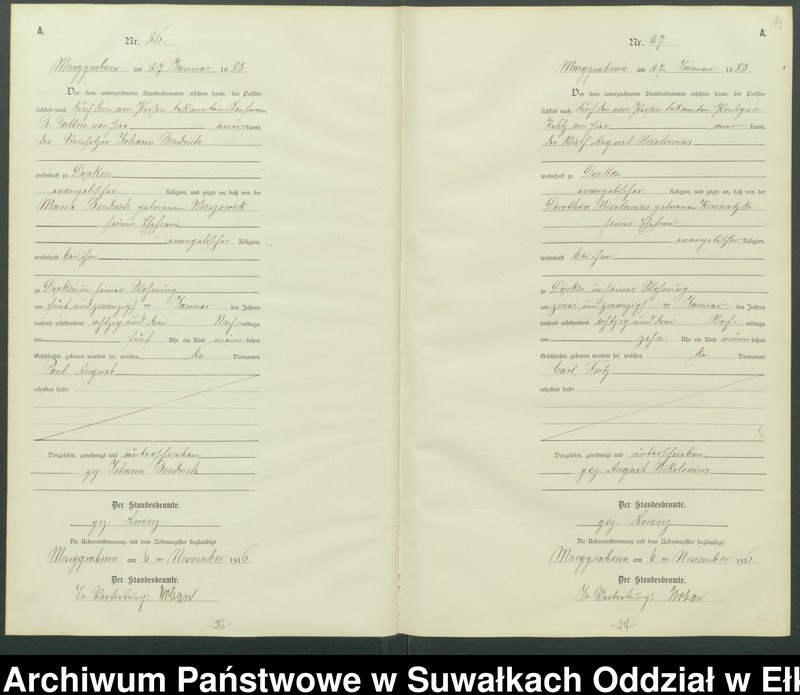 A.
Nr. 26.
Marggrabowa am 27 Januar 1883.
Vor dem unterzeichneten Standesbeamten erschien heute, der Persön-
lichkeit nach durch den von Person bekannten
von hier anerkannt,
der Johann Bendrich
wohnhaft zu Dopken
evangelischer Religion, und zeigte an, daß von der
Maria Bendrich geborenen
seiner Ehefrau
evangelischer Religion,
wohnhaft bei ihm
zu Dopken in seiner Wohnung
am fünf und zwanzigsten Januar des Jahres
tausend achthundert achtzig und drei Nachmittags
um fünf Uhr ein Kind männlichen
Geschlechts geboren worden sei, welches die Vornamen
Paul August
erhalten habe
Vorgelesen, genehmigt und unterschrieben
gez. Johann Bendrich
Der Standesbeamte.
gez. Lorenz
Die Uebereinstimmung mit dem Nebenregister beglaubigt
Marggrabowa am 6 ten November 1916
Der Standesbeamte.
In Vertretung: Urban
-26-
A.
Nr. 27.
Marggrabowa am 27. Januar 1883.
Vor dem unterzeichneten Standesbeamten erschien heute, der Persön-
lichkeit nach durch den von Person bekannten
von hier anerkannt,
der Wirth August Nicolovius
wohnhaft zu Dopken
evangelischer Religion, und zeigte an, daß von der
Dorothea Nicolovius geborenen
seiner Ehefrau
evangelischer Religion,
wohnhaft bei ihm
zu Dopken in seiner Wohnung
am zwei und zwanzigsten Januar des Jahres
tausend achthundert achtzig und drei Nachmittags
um zehn Uhr ein Kind männlichen
Geschlechts geboren worden sei, welches die Vornamen
Carl, Fritz
erhalten habe
Vorgelesen, genehmigt und unterschrieben
gez. August Nikolovius
Der Standesbeamte.
gez. Lorenz
Die Uebereinstimmung mit dem Nebenregister beglaubigt
Marggrabowa am 6 ten November 1916
Der Standesbeamte.
In Vertretung: Urban
-27-
Archiwum Państwowe w Suwałkach Oddział w Ełk